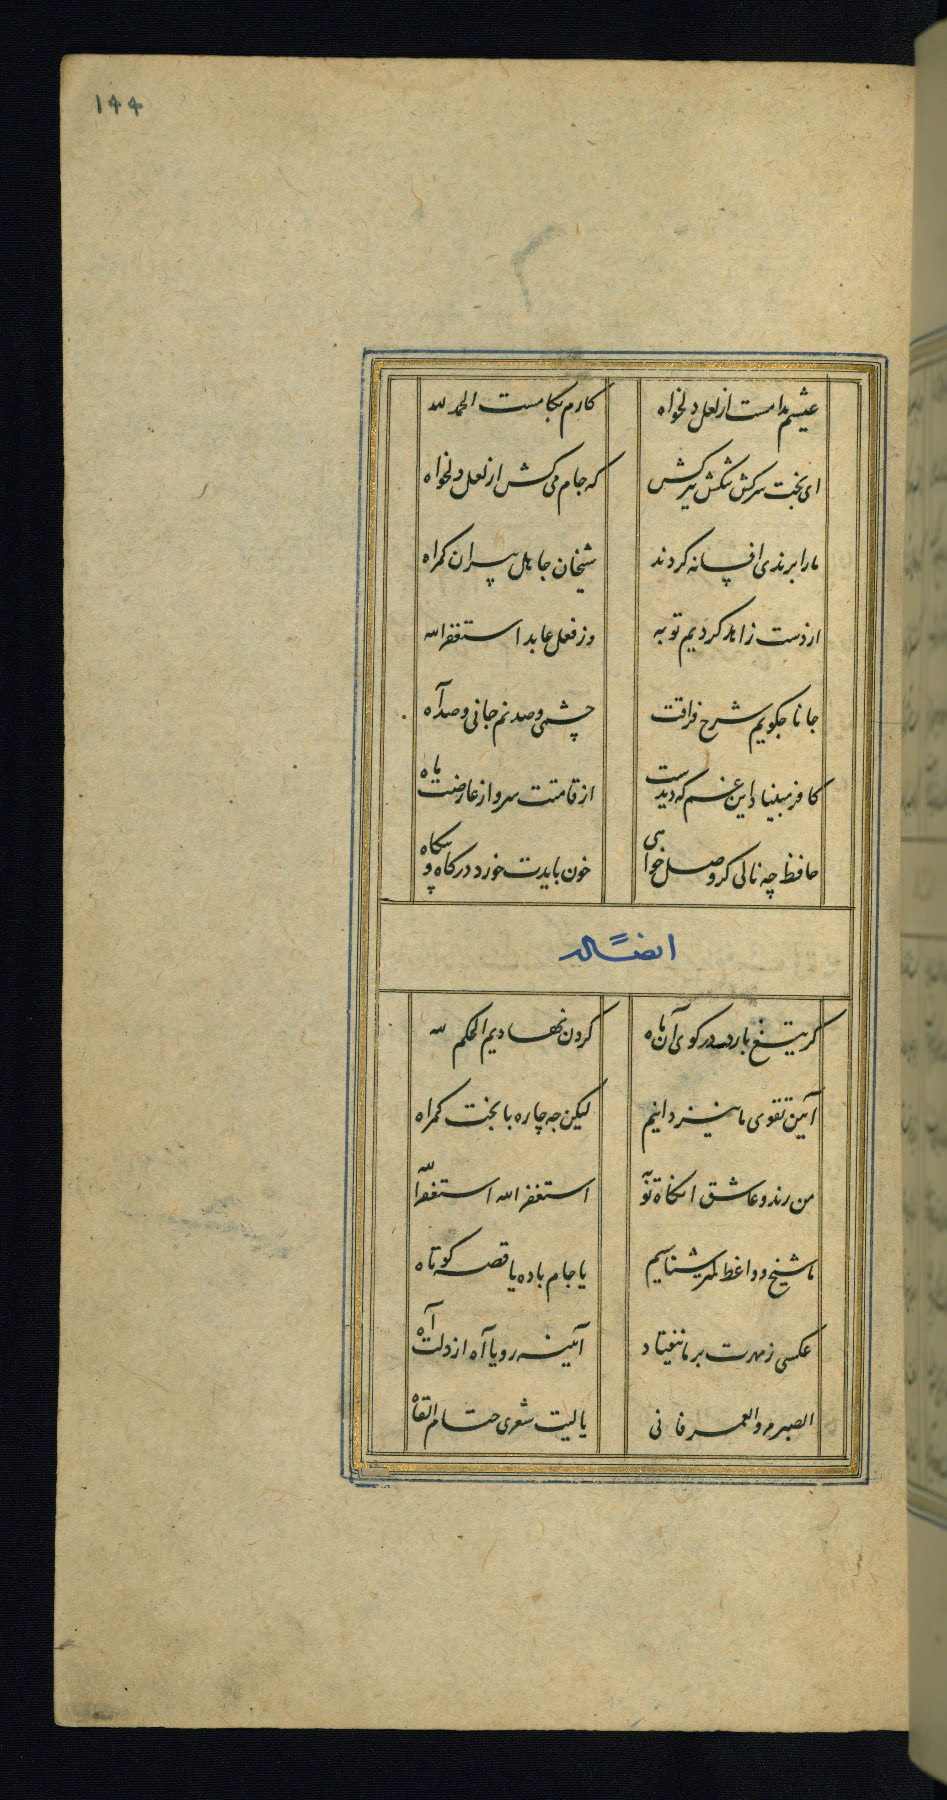 ۱۴۴
عیشم مدامست از لعل دلخواه کارم بکامست الحمد لله
ای بخت سرکش تنکش ببر کش که جام می کش از لعل دلخواه
ما را برندی افسانه کردند شیخان جاهل پیران کمراه
از دست زاهد کردیم توبه وز فعل عابد استغفر الله
جانا چکویم شرح فراقت چشمی و صد نم جانی و صد آه
کافر مبیناد این غم که دیدست از قامتت سرو از عارضت ماه
حافظ چه نالی کر وصل خواهی خون بایدت خورد در کاه و بیکاه
ایضًا له
کر تیغ بارد در کوی آن ماه کردن نهادیم الحکم لله
آیین تقوی ما نیز دانیم لیکن چه چاره با بخت کمراه
من رند و عاشق آنکاه توبه استغفر الله استغفر الله
ما شیخ و واعظ کمتر شناسیم یا جام باده یا قصه کوتاه
عکسی ز مهرت بر ما نیفتاد آیینه رویا آه از دلت آه
الصبر مر و العمر فانی یا لیت شعری حتام القاه